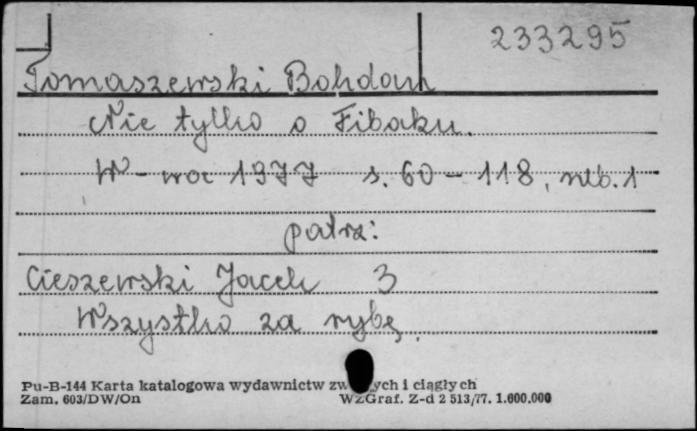 233295
Tomaszewski Bohdan
Nie tylko o Fibaku.
W-wa 1977 s. 60-118, nlb. 1
patrz:
Cieszewski Jacek 3
Wszystko za rybę.
Pu-B-144 Karta katalogowa wydawnictw i ciągłych
Zam. 603/DW/On WZGraf. Z-d 2 513/77. 1.600.000